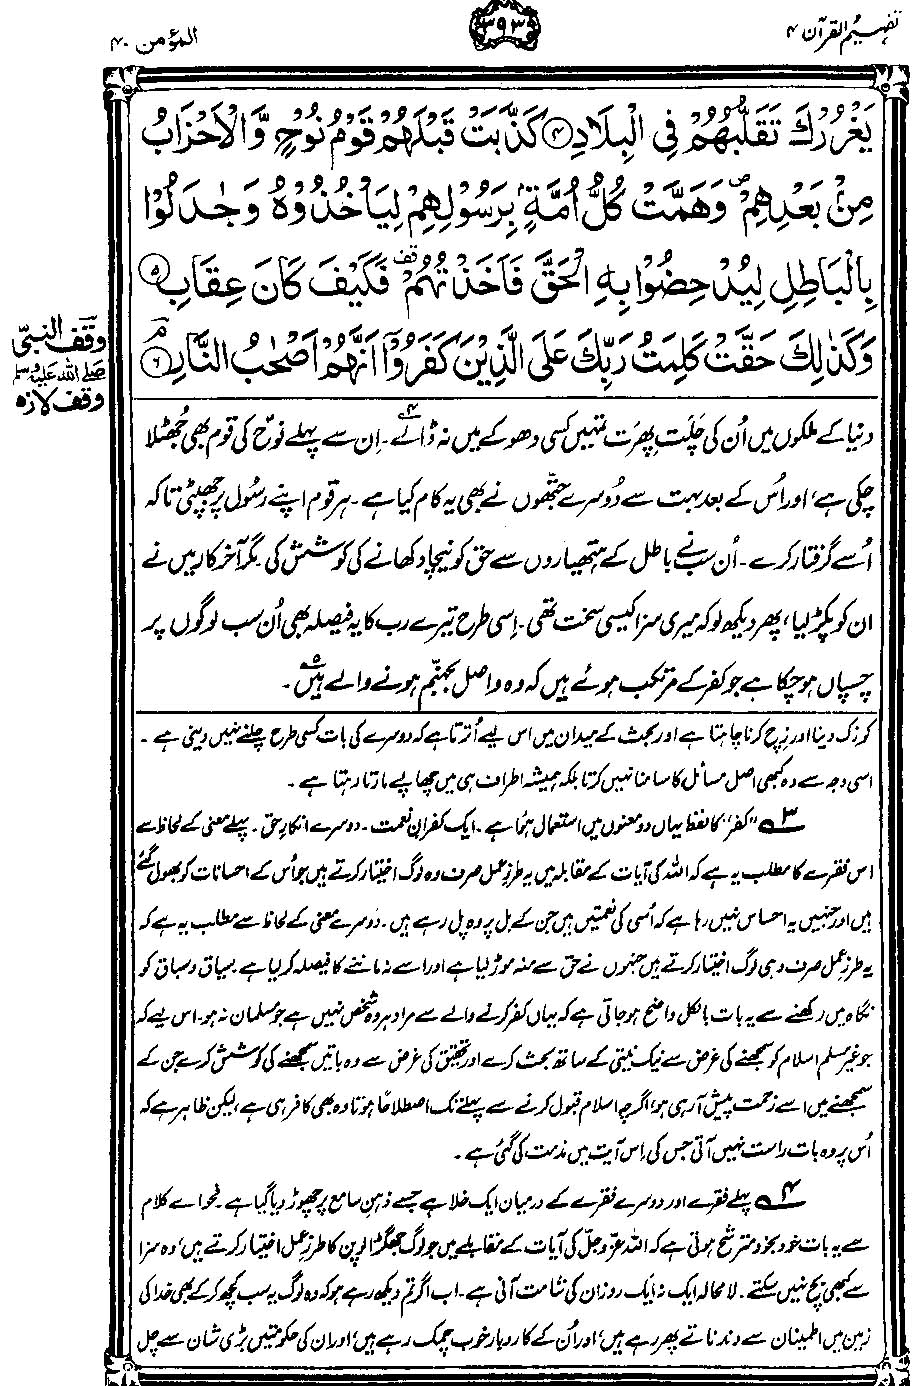 تفہیم القرآن ۴
۳۹۳
المؤمن ۴۰
يَغْرُرْكَ تَقَلُّبُهُمْ فِي الْبِلَادِ ﴿۴﴾ كَذَّبَتْ قَبْلَهُمْ قَوْمُ نُوْحٍ وَّالْاَحْزَابُ
مِنْۢ بَعْدِهِمْ ۪ وَهَمَّتْ كُلُّ اُمَّةٍۭ بِرَسُوْلِهِمْ لِيَاْخُذُوْهُ وَجٰدَلُوْا
بِالْبَاطِلِ لِيُدْحِضُوْا بِهِ الْحَقَّ فَاَخَذْتُهُمْ ۫ فَكَيْفَ كَانَ عِقَابِ ﴿۵﴾
وَكَذٰلِكَ حَقَّتْ كَلِمَتُ رَبِّكَ عَلَى الَّذِيْنَ كَفَرُوْۤا اَنَّهُمْ اَصْحٰبُ النَّارِ ﴿۶﴾ مـ
وقف النبیّ
صلی اللہ علیہ وسلم
وقف لازم
دنیا کے ملکوں میں اُن کی چَلَت پِھرَت تمہیں کسی دھوکے میں نہ ڈالے۴۔ اِن سے پہلے نوحؑ کی قوم بھی جُھٹلا
چکی ہے، اور اُس کے بعد بہت سے دُوسرے جتھّوں نے بھی یہ کام کیا ہے۔ ہر قوم اپنے رسُول پر جھپٹی تاکہ
اُسے گرفتار کرے۔ اُن سب نے باطل کے ہتھیاروں سے حق کو نیچا دکھانے کی کوشش کی۔ مگر آخر کار میں نے
ان کو پکڑ لیا، پھر دیکھ لو کہ میری سزا کیسی سخت تھی۔ اِسی طرح تیرے رب کا یہ فیصلہ بھی اُن سب لوگوں پر
چسپاں ہو چکا ہے جو کفر کے مرتکب ہوئے ہیں کہ وہ واصلِ بجہنّم ہونے والے ہیں۵۔
کو زک دینا اور زِچ کرنا چاہتا ہے اور بحث کے میدان میں اس لیے اُترتا ہے کہ دوسرے کی بات کسی طرح چلنے نہیں دینی ہے۔
اسی وجہ سے وہ کبھی اصل مسائل کا سامنا نہیں کرتا بلکہ ہمیشہ اطراف ہی میں چھاپے مارتا رہتا ہے۔
۳ ”کفر“ کا لفظ یہاں دو معنوں میں استعمال ہوا ہے۔ ایک کفرانِ نعمت۔ دوسرے انکارِ حق۔ پہلے معنی کے لحاظ سے
اس فقرے کا مطلب یہ ہے کہ اللہ کی آیات کے مقابلہ میں یہ طرزِ عمل صرف وہ لوگ اختیار کرتے ہیں جو اُس کے احسانات کو بھول گئے
ہیں اور جنہیں یہ احساس نہیں رہا ہے کہ اُسی کی نعمتیں ہیں جن کے بل پر وہ پل رہے ہیں۔ دوسرے معنی کے لحاظ سے مطلب یہ ہے کہ
یہ طرزِ عمل صرف وہی لوگ اختیار کرتے ہیں جنہوں نے حق سے منہ موڑ لیا ہے اور اسے نہ ماننے کا فیصلہ کر لیا ہے۔ سیاق و سباق کو
نگاہ میں رکھنے سے یہ بات بالکل واضح ہو جاتی ہے کہ یہاں کفر کرنے والے سے مراد ہر وہ شخص نہیں ہے جو مسلمان نہ ہو۔ اس لیے کہ
جو غیر مسلم اسلام کو سمجھنے کی غرض سے نیک نیتی کے ساتھ بحث کرے اور تحقیق کی غرض سے وہ باتیں سمجھنے کی کوشش کرے جن کے
سمجھنے میں اسے زحمت پیش آ رہی ہو، اگرچہ اسلام قبول کرنے سے پہلے تک اصطلاحاً ہوتا وہ بھی کافر ہی ہے، لیکن ظاہر ہے کہ
اُس پر وہ بات راست نہیں آتی جس کی اِس آیت میں مذمت کی گئی ہے۔
۴ پہلے فقرے اور دوسرے فقرے کے درمیان ایک خلا ہے جسے ذہنِ سامع پر چھوڑ دیا گیا ہے۔ فحوائے کلام
سے یہ بات خود بخود مترشح ہوتی ہے کہ اللہ عزّ و جلّ کی آیات کے مقابلے میں جو لوگ جھگڑالو پن کا طرزِ عمل اختیار کرتے ہیں، وہ سزا
سے کبھی بچ نہیں سکتے۔ لامحالہ ایک نہ ایک روز ان کی شامت آنی ہے۔ اب اگر تم دیکھ رہے ہو کہ وہ لوگ یہ سب کچھ کر کے بھی خدا کی
زمین میں اطمینان سے دندناتے پھر رہے ہیں، اور اُن کے کاروبار خوب چمک رہے ہیں، اور ان کی حکومتیں بڑی شان سے چل